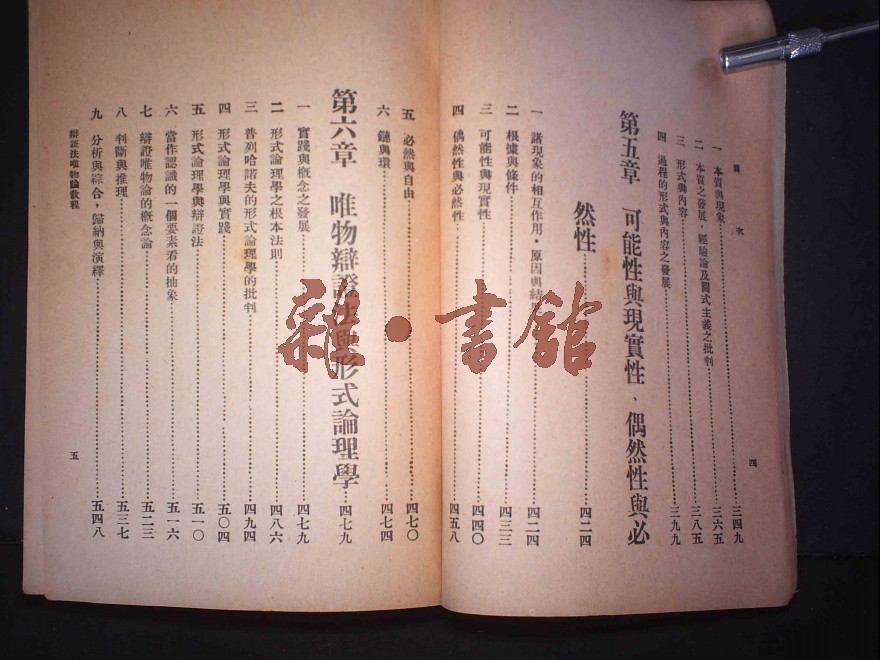 目次
一 本質與現象……三四九
二 本質之發展，經驗論及圖式主義之批判……三六五
三 形式與內容……三八五
四 過程的形式與內容之發展……三九九
第五章 可能性與現實性、偶然性與必
然性……四二四
一 諸現象的相互作用，原因與結……四二四
二 根據與條件……四三三
三 可能性與現實性……四四〇
四 偶然性與必然性……四五八
四
五 必然與自由……四七〇
六 鏈與環……四七四
第六章 唯物辯證法與形式論理學……四七九
一 實踐與概念之發展……四七九
二 形式論理學之根本法則……四八六
三 普列哈諾夫的形式論理學的批判……四九四
四 形式論理學與實踐……五〇四
五 形式論理學與辯證法……五一〇
六 當作認識的一個要素看的抽象……五一六
七 辯證唯物論的概念論……五二三
八 判斷與推理……五三七
九 分析與綜合，歸納與演繹……五四八
辯證法唯物論教程
五
雜·書館